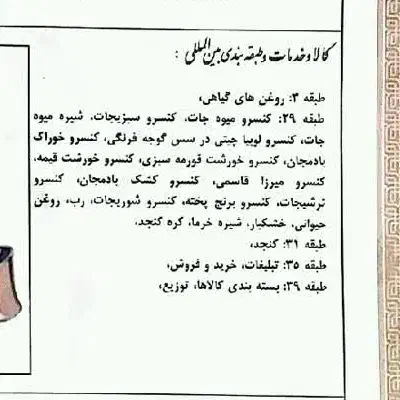 کالا و خدمات و طبقه بندی بین‌المللی :
طبقه ۳: روغن های گیاهی،
طبقه ۲۹: کنسرو میوه جات، کنسرو سبزیجات، شیره میوه
جات، کنسرو لوبیا چیتی در سس گوجه فرنگی، کنسرو خوراک
بادمجان، کنسرو خورشت قورمه سبزی، کنسرو خورشت قیمه،
کنسرو میرزا قاسمی، کنسرو کشک بادمجان، کنسرو
ترشیجات، کنسرو برنج پخته، کنسرو شوریجات، رب، روغن
حیوانی، خشکبار، شیره خرما، کره کنجد،
طبقه ۳۱: کنجد،
طبقه ۳۵: تبلیغات، خرید و فروش،
طبقه ۳۹: بسته بندی کالاها، توزیع،